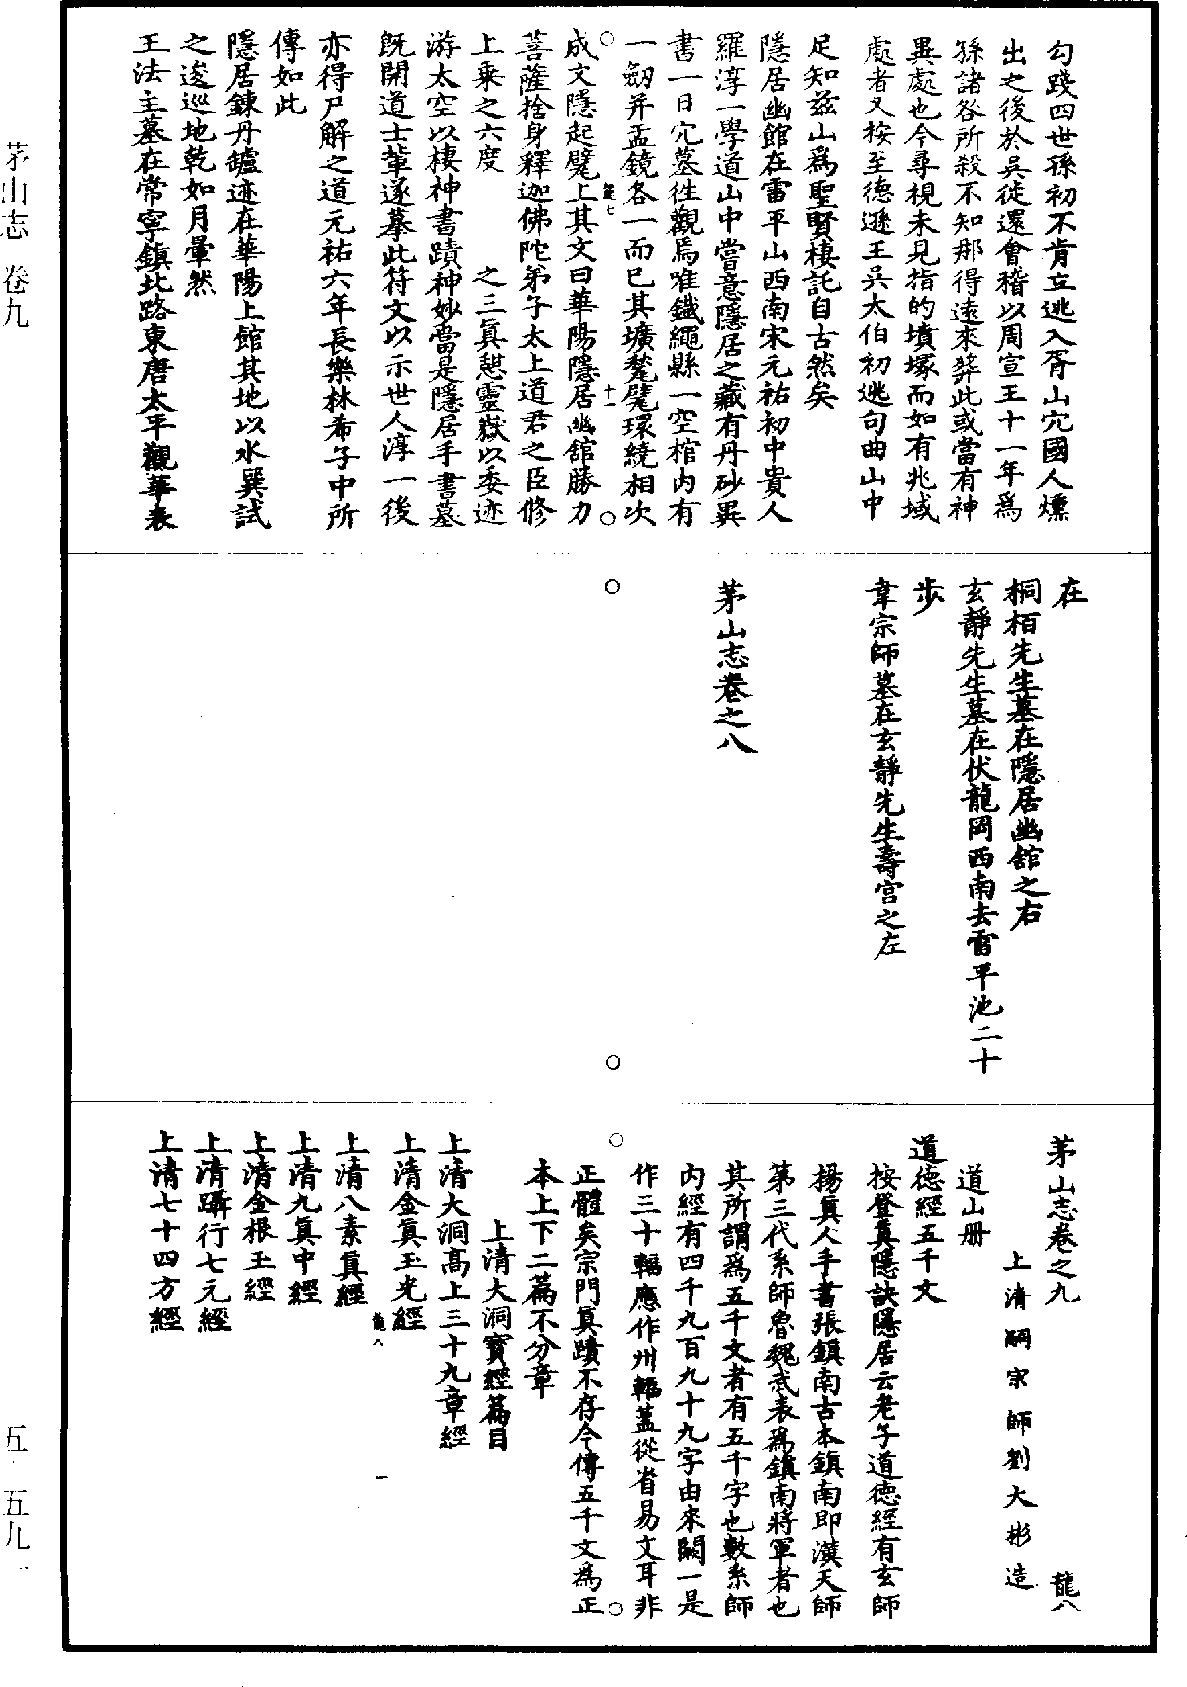 勾踐四世孫初不肯立逃入胥山穴國人燻
出之後於吳徙還會稽以周宣王十一年爲
孫諸各所殺不知那得遠來葬此或當有神
異處也今尋視未見指的墳塚而如有兆域
處者又按至德遜王吳太伯初逃句曲山中
足知茲山爲聖賢棲託自古然矣
隱居幽館在雷平山西南宋元祐初中貴人
羅淳一學道山中嘗意隱居之藏有丹砂異
書一日穴墓徃觀焉唯鐵繩縣一空棺内有
一劒并盂鏡各一而已其壙甃甓環繞相次
龍七 十一
成文隱起甓上其文曰華陽隱居幽館勝力
菩薩捨身釋迦佛陀弟子太上道君之臣修
上乗之六度 之三眞憇靈嶽以委迹
游太空以棲神書蹟神妙當是隱居手書墓
旣開道士輩遂摹此符文以示世人淳一後
亦得尸解之道元祐六年長樂林希子中所
傳如此
隱居鍊丹鑪迹在華陽上館其地以水巽試
之逡巡地乾如月暈然
王法主墓在常寧鎮北路東唐太平觀華表
在
桐栢先生墓在隱居幽舘之右
玄靜先生墓在伏龍岡西南去雷平池二十
歩
韋宗師墓在玄靜先生壽宫之左
茅山志卷之八
茅山志卷之九 龍八
上清嗣宗師劉大彬造
道山册
道德經五千文
按登眞隱訣隱居云老子道德經有玄師
楊眞人手書張鎮南古本鎮南即漢天師
第三代系師魯魏武表爲鎮南將軍者也
其所謂爲五千文者有五千字也數系師
内經有四千九百九十九字由來闕一是
作三十輻應作卅輻蓋從省易文耳非
正體矣宗門眞蹟不存今傳五千文爲正
本上下二篇不分章
上清大洞寳經篇目
上清大洞髙上三十九章經
上清金眞玉光經
龍八 一
上清八素眞經
上清九眞中經
上清金根玉經
上清躡行七元經
上清七十四方經
茅山志 卷九
五 五九